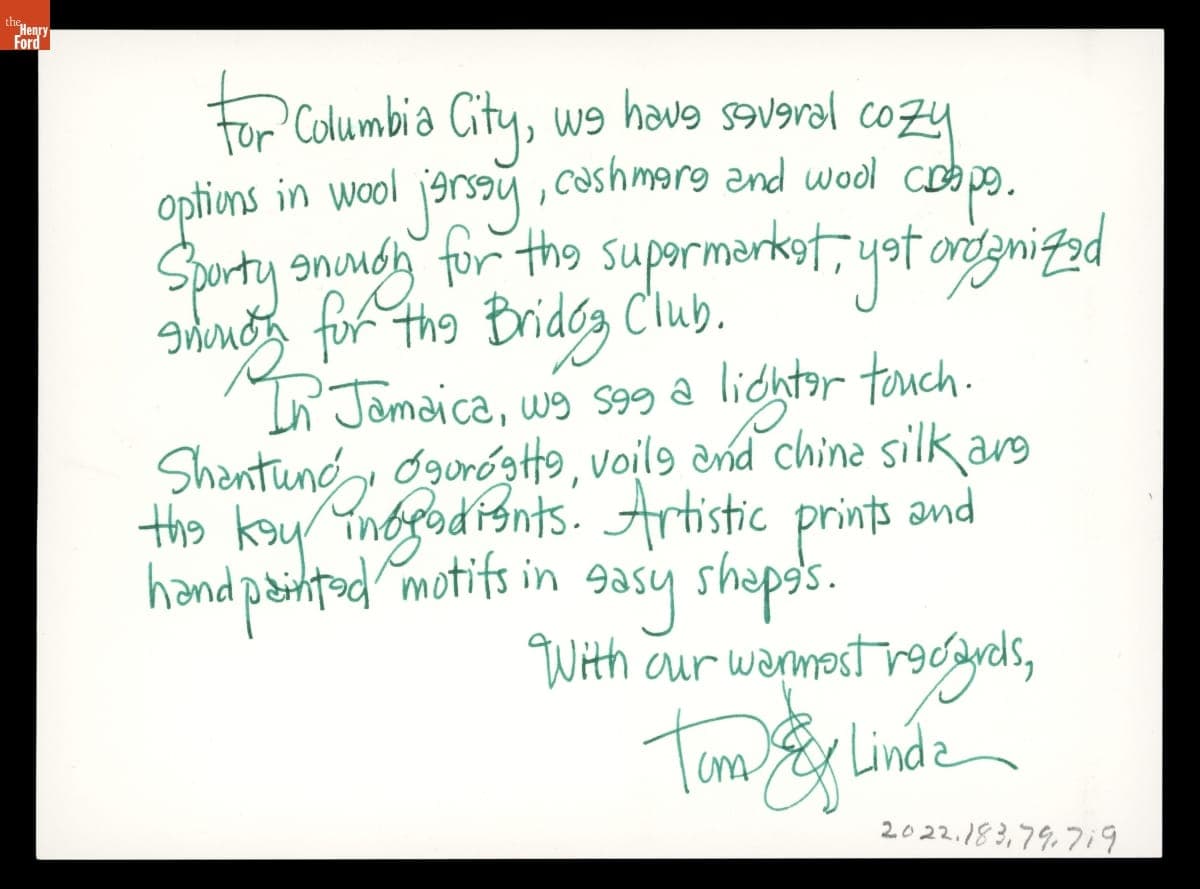 the
Henry
Ford
For Columbia City, we have several cozy
options in wool jersey, cashmere and wool crepe.
Sporty enough for the supermarket, yet organized
enough for the Bridge Club.
In Jamaica, we see a lighter touch.
Shantung, georgette, voile and china silk are
the key ingredients. Artistic prints and
handpainted motifs in easy shapes.
With our warmest regards,
Tom & Linda
2022.183.79.7;9